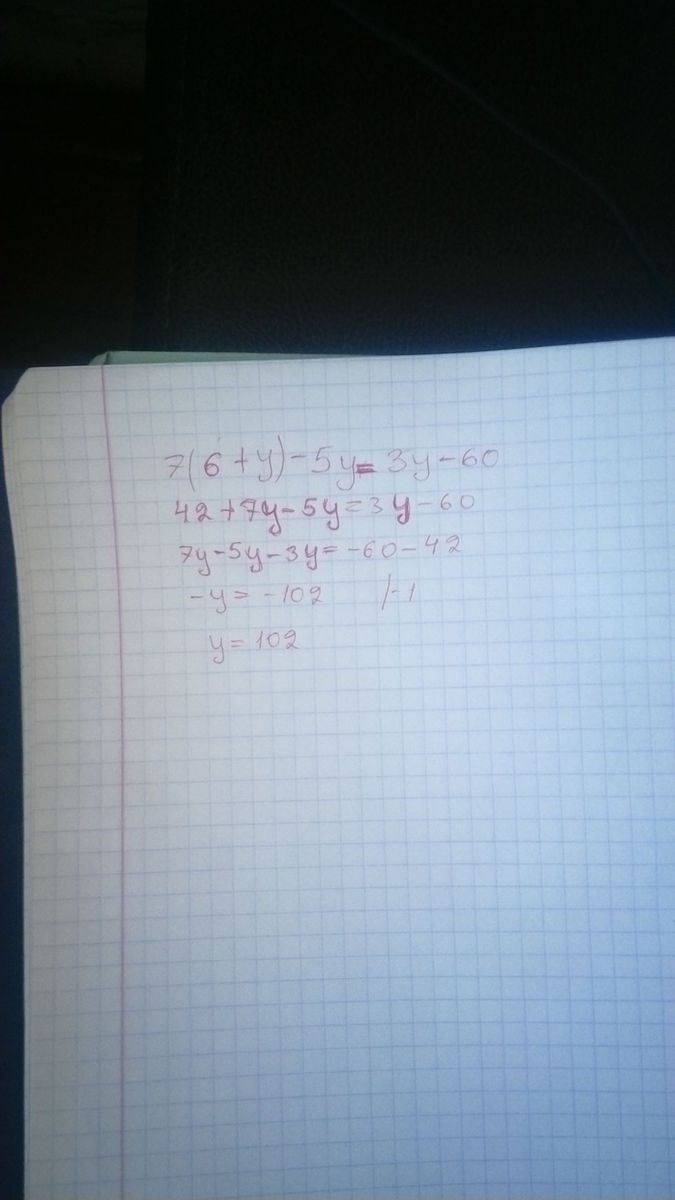 7(6+y)-5y=3y-60
42+7y-5y=3y-60
7y-5y-3y=-60-42
-y=-102 /-1
y=102